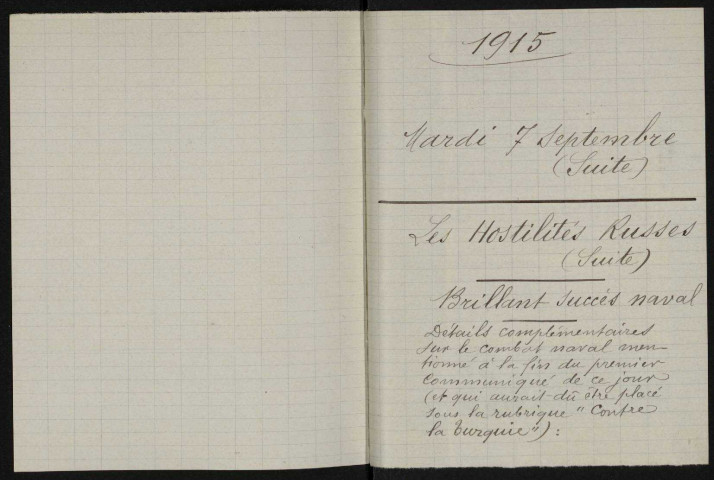 1915
Mardi 7 Septembre
(Suite)
Les Hostilités Russes
(Suite)
Brillant succès naval
Détails complémentaires
sur le combat naval men-
tionné à la fin du premier
communiqué de ce jour
(et qui aurait-dû être placé
sous la rubrique "Contre
la Turquie"):